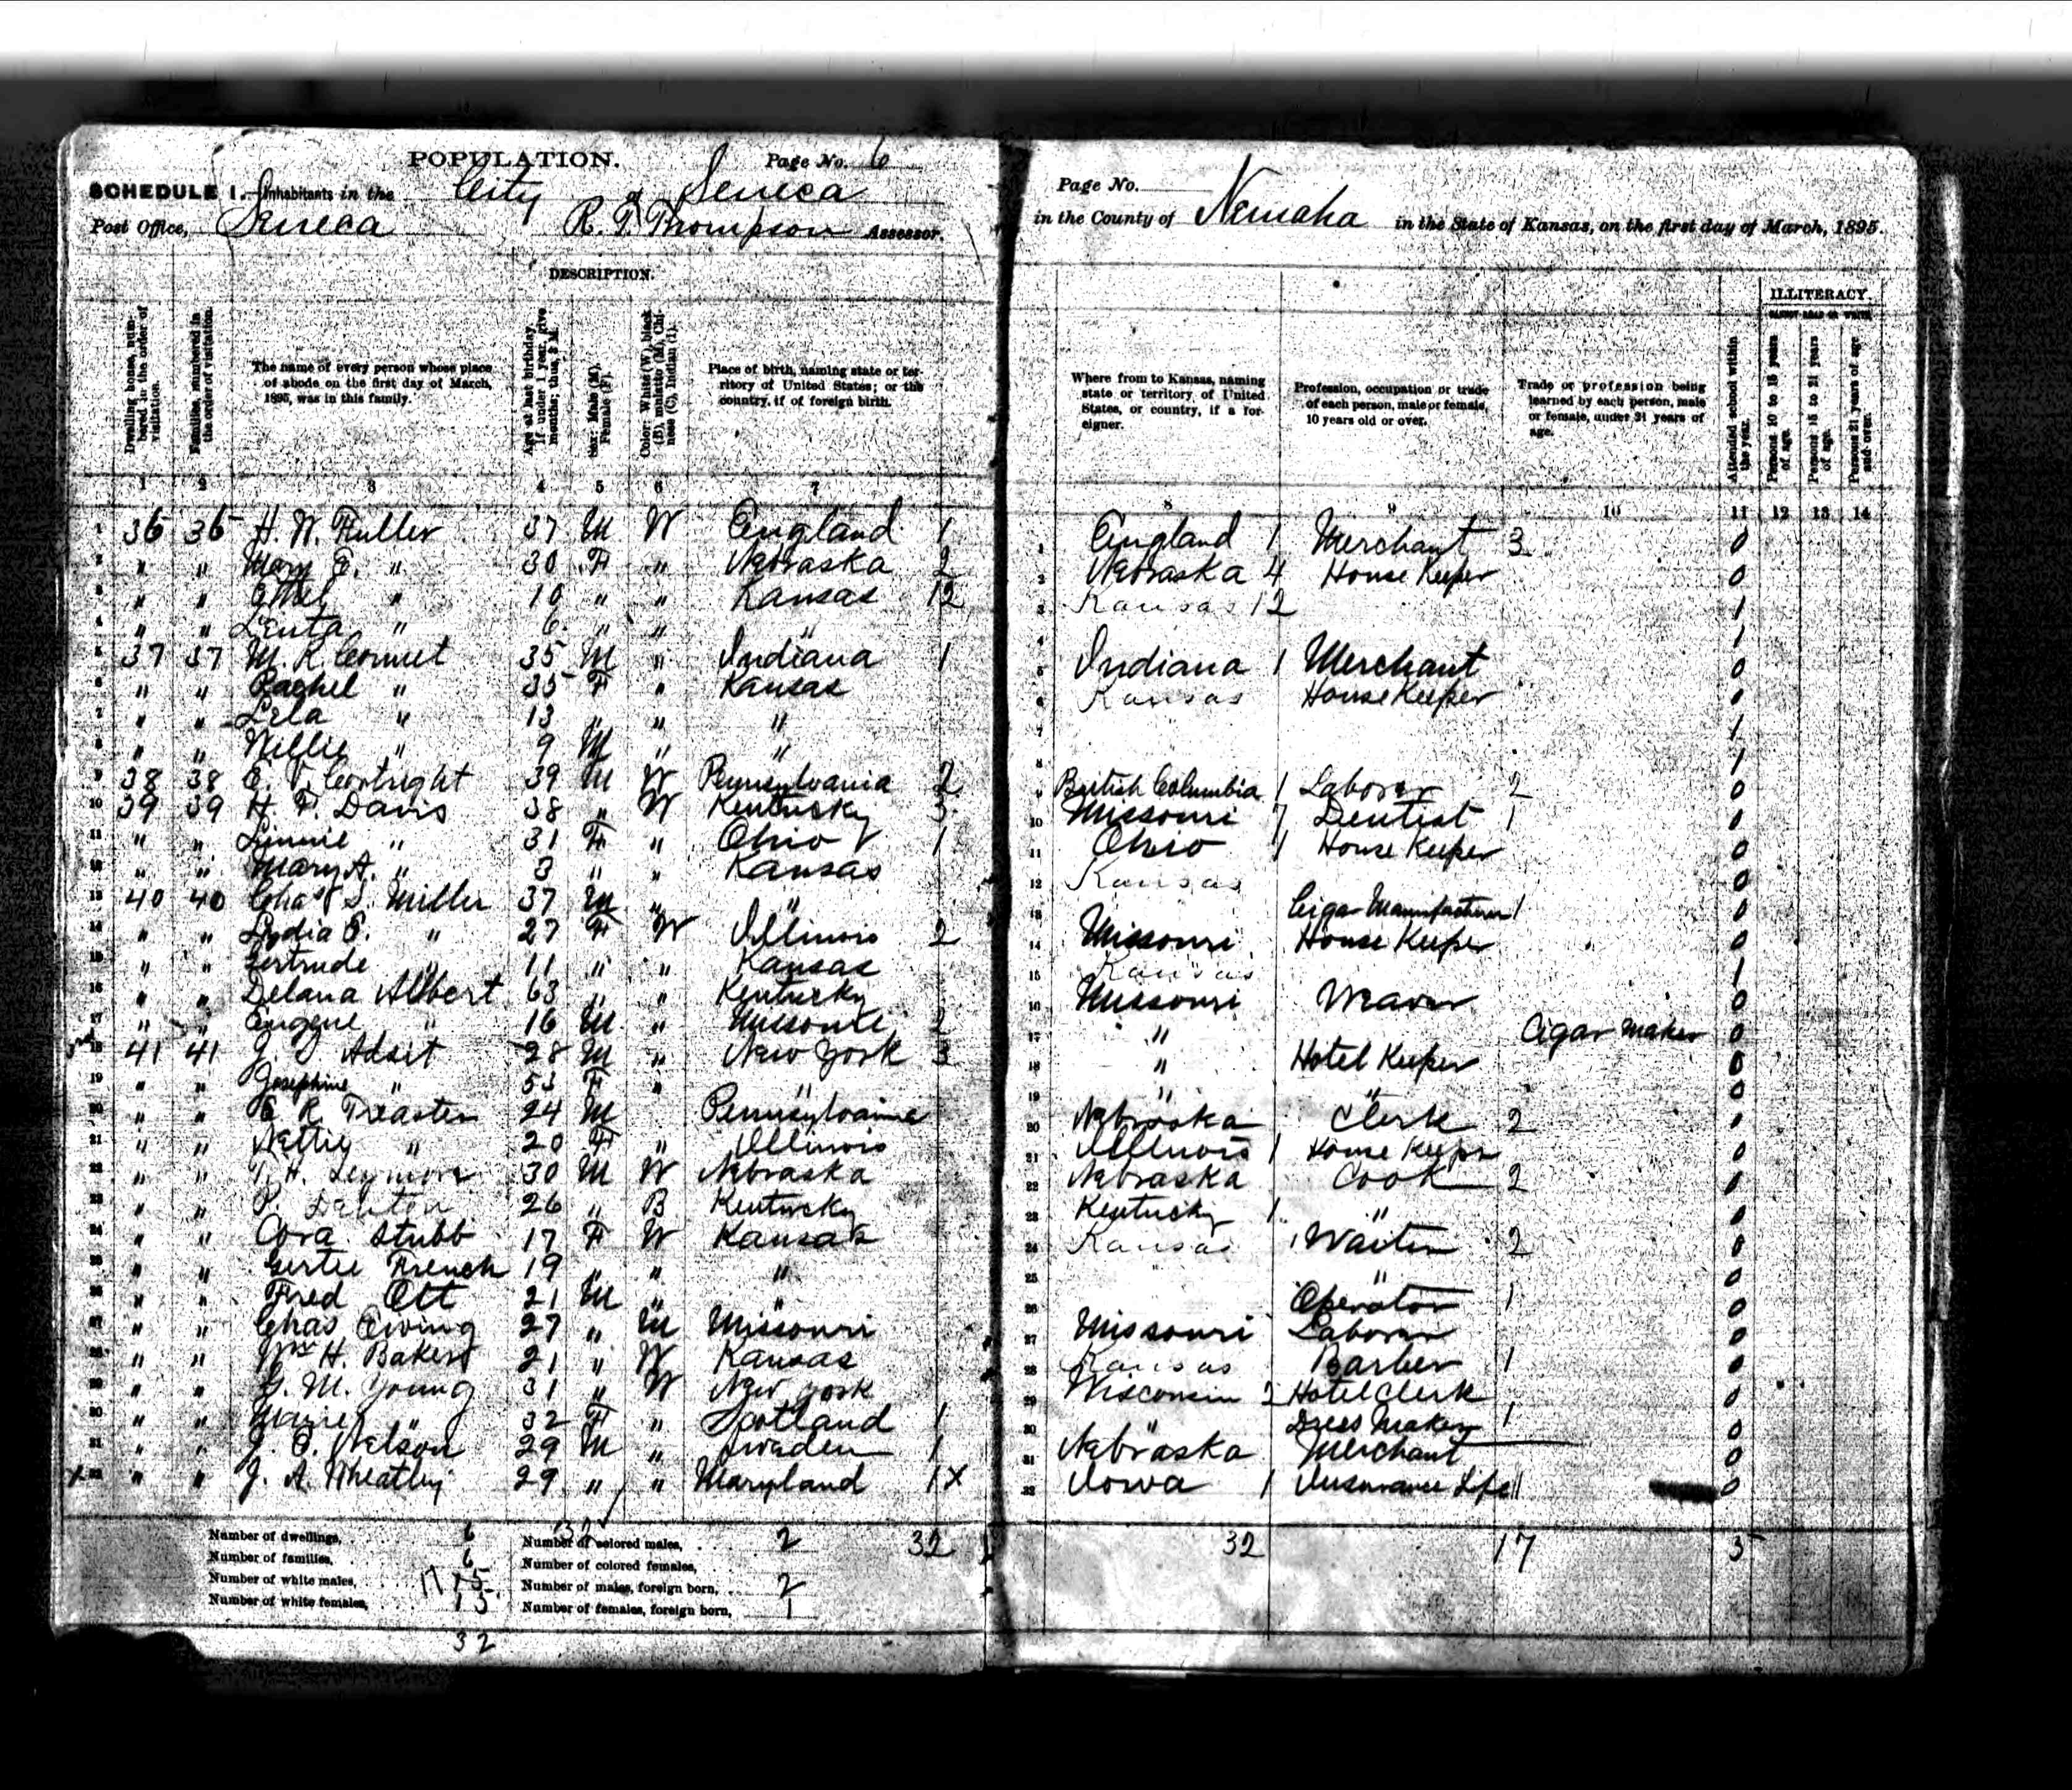 POPULATION. Page No. 6
SCHEDULE 1.—Inhabitants in the City of Seneca
Post Office, Seneca R. T. Thompson Assessor.
Page No.
in the County of Nemaha in the State of Kansas, on the first day of March, 1895.
DESCRIPTION.
ILLITERACY.
CANNOT READ OR WRITE
Dwelling house, numbered in the order of visitation.
Families, numbered in the order of visitation.
The name of every person whose place of abode on the first day of March, 1895, was in this family.
Age at last birthday. If under 1 year, give months; thus, 3 M.
Sex: Male (M), Female (F).
Color: White (W), black (B), mulatto (M), Chinese (C), Indian (I).
Place of birth, naming state or territory of United States; or the country, if of foreign birth.
Where from to Kansas, naming state or territory of United States, or country, if a foreigner.
Profession, occupation or trade of each person, male or female, 10 years old or over.
Trade or profession being learned by each person, male or female, under 21 years of age.
Attended school within the year.
Persons 10 to 15 years of age.
Persons 15 to 21 years of age.
Persons 21 years of age and over.
1 2 3 4 5 6 7 8 9 10 11 12 13 14
1 36 36 H. W. Fuller 37 M W England 1 1 England 1 Merchant 3 0
2 " " Mary E. " 30 F " Nebraska 2 2 Nebraska 4 House Keeper 0
3 " " Ethel " 10 " " Kansas 12 3 Kansas 12 1
4 " " " 6 " " " 4 1
5 37 37 M. R. 35 M " Indiana 1 5 Indiana 1 Merchant 0
6 " " Rachel " 35 F " Kansas 6 Kansas House Keeper 0
7 " " Lela " 13 " " " 7 1
8 " " Willie " 9 M " " 8 1
9 38 38 Cortright 39 M W Pennsylvania 2 9 British Columbia 1 Laborer 2 0
10 39 39 H. F. Davis 38 " W Kentucky 3 10 Missouri 7 Dentist 1 0
11 " " Linnie " 31 F " Ohio 1 11 Ohio 1 House Keeper 0
12 " " Mary A. " 3 " " Kansas 12 Kansas 0
13 40 40 Chas S. Miller 37 M " " 13 Cigar Manufacturer 1 0
14 " " Lydia E. " 27 F W Illinois 2 14 Missouri House Keeper 0
15 " " Gertrude " 11 " " Kansas 15 Kansas 1
16 " " Delana Albert 63 " " Kentucky 16 Missouri Weaver 0
17 " " Eugene " 16 M " Missouri 2 17 " Cigar Maker 0
18 41 41 Adsit 28 M " New York 3 18 " Hotel Keeper 0
19 " " Josephine " 53 F " " 19 " " 0
20 " " R. Treaster 24 M Pennsylvania 20 Nebraska Clerk 2 0
21 " " Nettie " 20 F " Illinois 21 Illinois 1 House Keeper 0
22 " " T. H. Seymore 30 M W Nebraska 22 Nebraska Cook 2 0
23 " " P. 26 " B Kentucky 23 Kentucky 1 " 0
24 " " Cora Stubb 17 F W Kansas 24 Kansas Waiter 2 0
25 " " Gertie French 19 " " " 25 " 0
26 " " Fred Ott 21 M " " 26 Operator 1 0
27 " " Chas Ewing 27 " M Missouri 27 Missouri Laborer 0
28 " " Wm H. Baker 21 " W Kansas 28 Kansas Barber 1 0
29 " " G. M. Young 31 " W New York 29 Wisconsin 2 Hotel Clerk 0
30 " " " 32 F " Scotland 1 30 " Dress Maker 1 0
31 " " J. O. Nelson 29 M " Sweden 1 31 Nebraska Merchant 0
x 32 " " J. A. Wheatley 29 " " Maryland 1x 32 Iowa 1 Insurance Life 0
Number of dwellings, 6 32 Number of colored males, 2 32 32 17 5
Number of families, 6 Number of colored females,
Number of white males, 17 15 Number of males, foreign born, 2
Number of white females, 13 Number of females, foreign born, 1
32